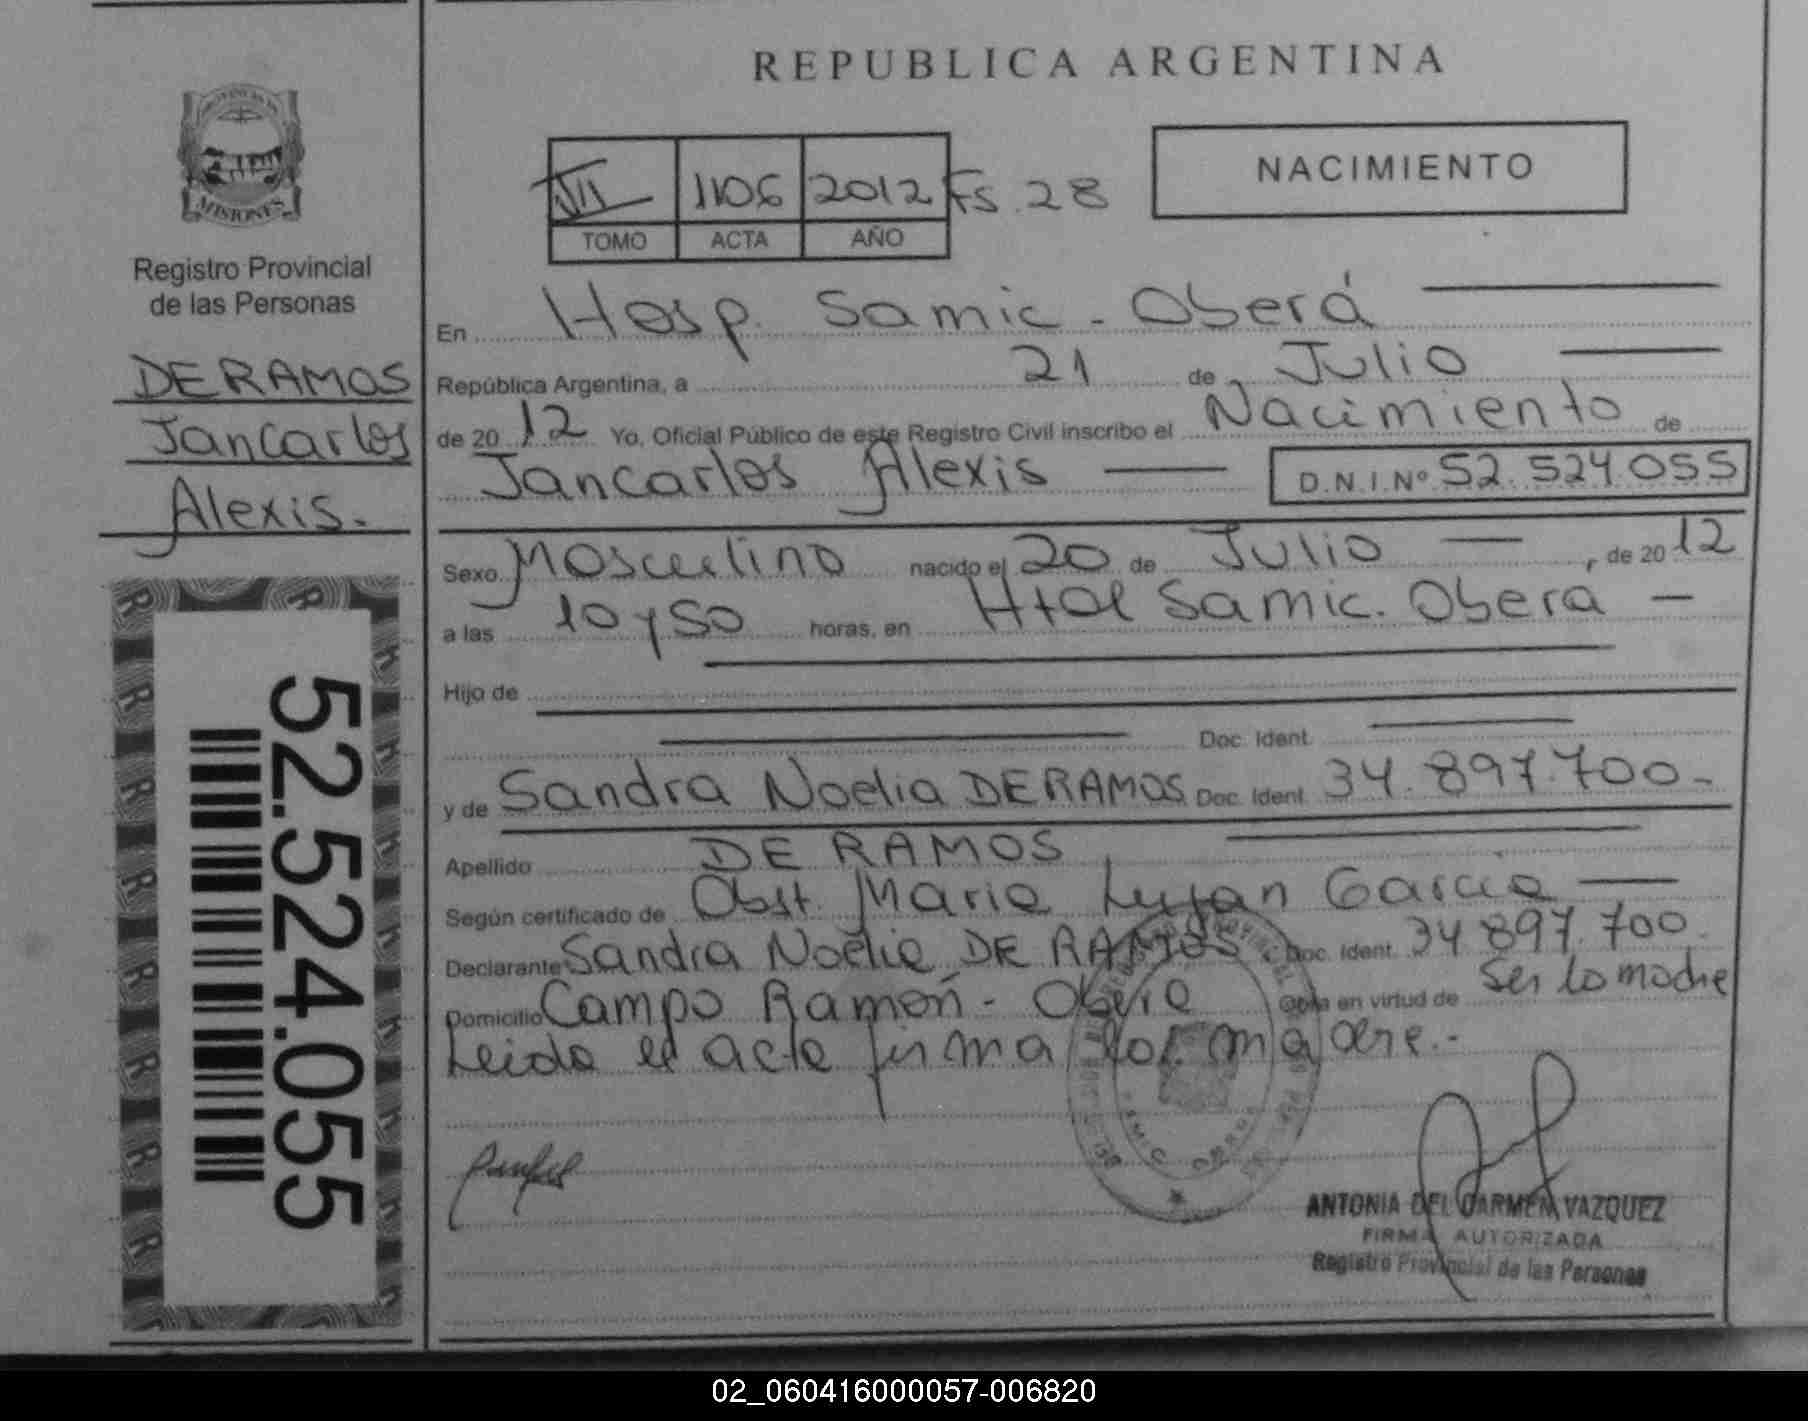 REPUBLICA ARGENTINA
PROVINCIA DE
MISIONES
Registro Provincial
de las Personas
DE RAMOS
Jancarlos
Alexis.
52.524.055
VII 1106 2012 Fs. 28
TOMO ACTA AÑO
NACIMIENTO
En Hosp. Samic - Oberá
República Argentina, a 21 de Julio
de 2012 Yo, Oficial Público de este Registro Civil inscribo el Nacimiento de
Jancarlos Alexis D.N.I.Nº 52.524.055
Sexo Masculino nacido el 20 de Julio, de 2012
a las 10 y 50 horas, en Htal Samic. Oberá
Hijo de
Doc. Ident.
y de Sandra Noelia DE RAMOS Doc. Ident. 34.897.700-
Apellido DE RAMOS
Según certificado de Obst. Maria Lujan Garcia
Declarante Sandra Noelia DE RAMOS Doc. Ident. 34 897.700.
Domicilio Campo Ramón - Obera Obra en virtud de Ser la madre
Leida el acta firma la madre.-
ANTONIA DEL CARMEN VAZQUEZ
FIRMA AUTORIZADA
Registro Provincial de las Personas
02_060416000057-006820